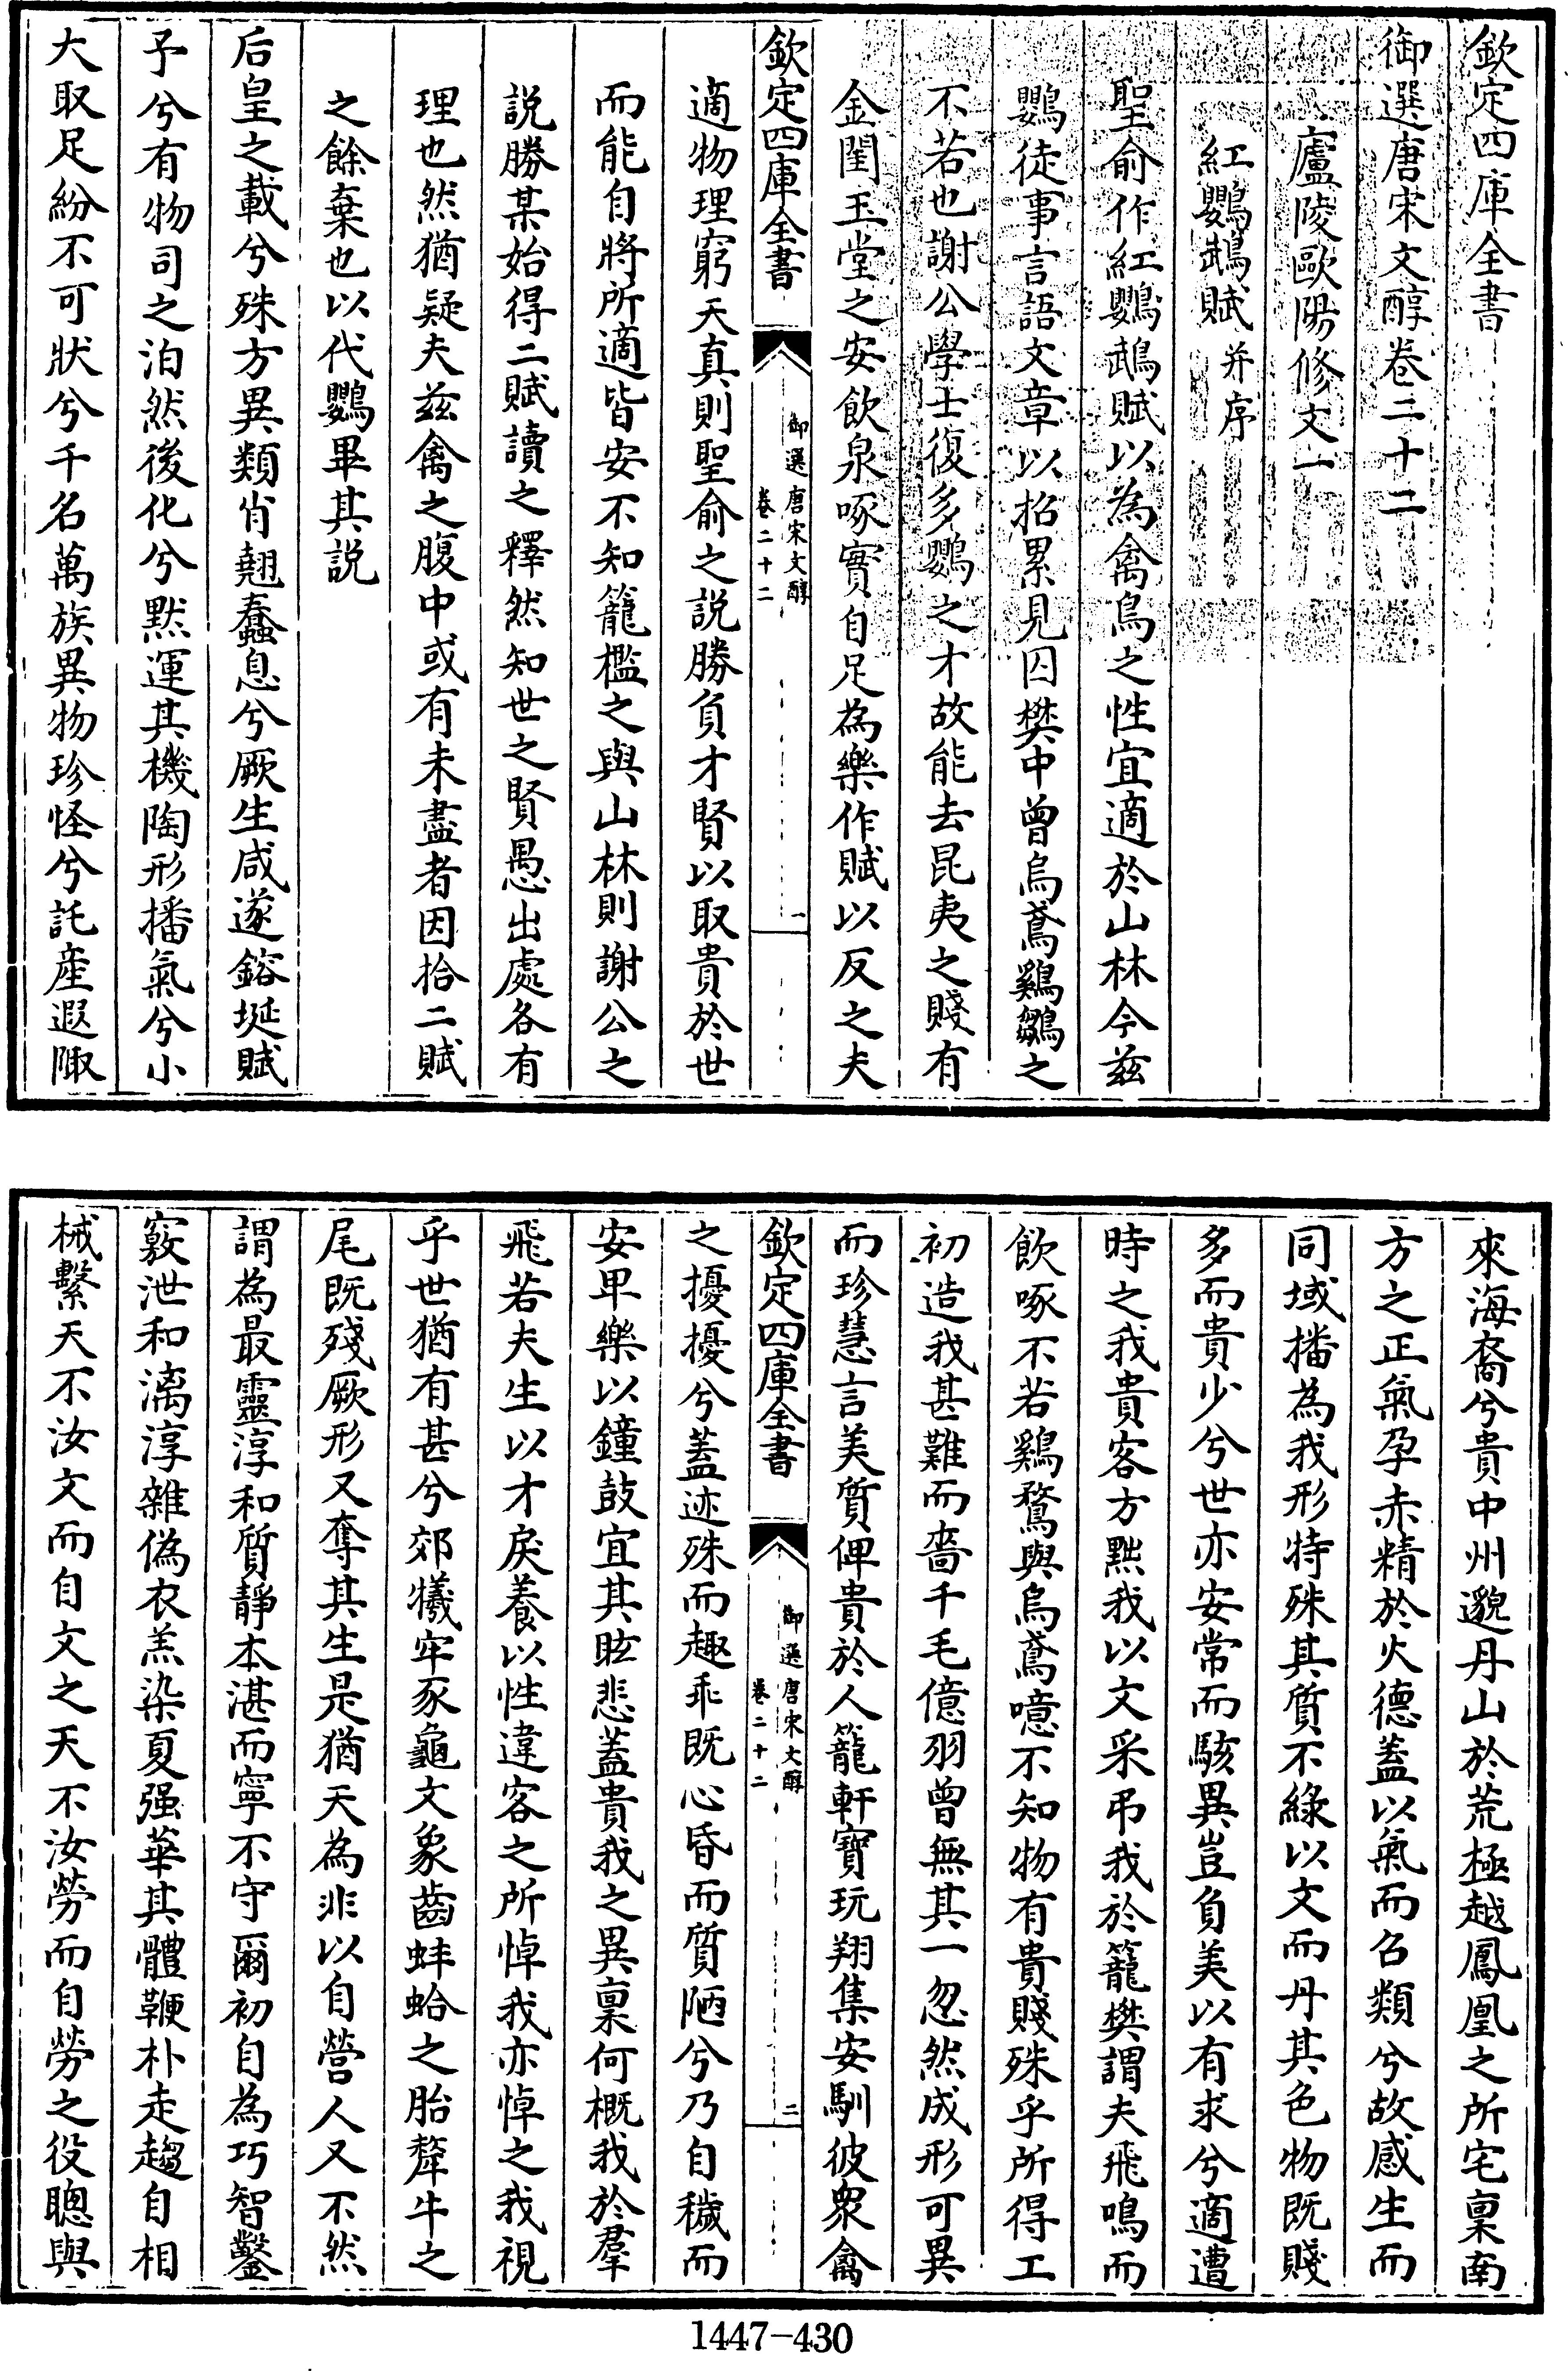 欽定四庫全書
御選唐宋文醇卷二十二
廬陵歐陽修文一
紅鸚鵡賦并序
聖俞作紅鸚鵡賦以為禽鳥之性宜適於山林今茲
鸚徒事言語文章以招累見囚樊中曾烏鳶鷄鶵之
不若也謝公學士復多鸚之才故能去昆夷之賤有
金閨玉堂之安飲泉啄實自足為樂作賦以反之夫
欽定四庫全書
御選唐宋文醇
卷二十二
一
適物理窮天真則聖俞之説勝負才賢以取貴於世
而能自將所適皆安不知籠檻之與山林則謝公之
説勝某始得二賦讀之釋然知世之賢愚出處各有
理也然猶疑夫茲禽之腹中或有未盡者因拾二賦
之餘棄也以代鸚畢其説
后皇之載兮殊方異類肖翹蠢息兮厥生咸遂鎔埏賦
予兮有物司之泊然後化兮黙運其機陶形播氣兮小
大取足紛不可狀兮千名萬族異物珍怪兮託産遐陬
來海裔兮貴中州邈丹山於荒極越鳳凰之所宅稟南
方之正氣孕赤精於火德蓋以氣而召類兮故感生而
同域播為我形特殊其質不綠以文而丹其色物既賤
多而貴少兮世亦安常而駭異豈負美以有求兮適遭
時之我貴客方黜我以文采弔我於籠樊謂夫飛鳴而
飲啄不若鷄鶩與烏鳶噫不知物有貴賤殊乎所得工
初造我甚難而嗇千毛億羽曾無其一忽然成形可異
而珍慧言美質俾貴於人籠軒寶玩翔集安馴彼衆禽
欽定四庫全書
御選唐宋文醇
卷二十二
二
之擾擾兮蓋迹殊而趣乖既心昏而質陋兮乃自穢而
安卑樂以鐘鼓宜其眩悲蓋貴我之異稟何概我於羣
飛若夫生以才戾養以性違客之所悼我亦悼之我視
乎世猶有甚兮郊犧牢豕龜文象齒蚌蛤之胎犛牛之
尾既殘厥形又奪其生是猶天為非以自營人又不然
謂為最靈淳和質靜本湛而寧不守爾初自為巧智鑿
竅泄和漓淳雜偽衣羔染夏强華其體鞭朴走趨自相
械繫天不汝文而自文之天不汝勞而自勞之役聰與
1447-430